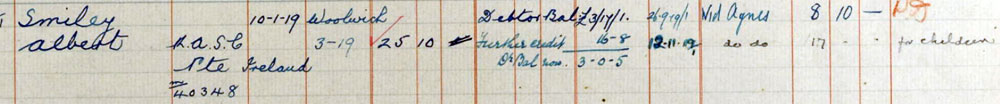 Smiley 10-1-19 Woolwich Debtor Bal £3/17/1. 26-9-19/1 Wid Agnes 8 10 —
Albert R.A.S.C 3-19 25 10 Further credit 16-8 12-11-19, do do 17 - - for children
Pte Ireland Dr Bal now. 3-0-5
40348